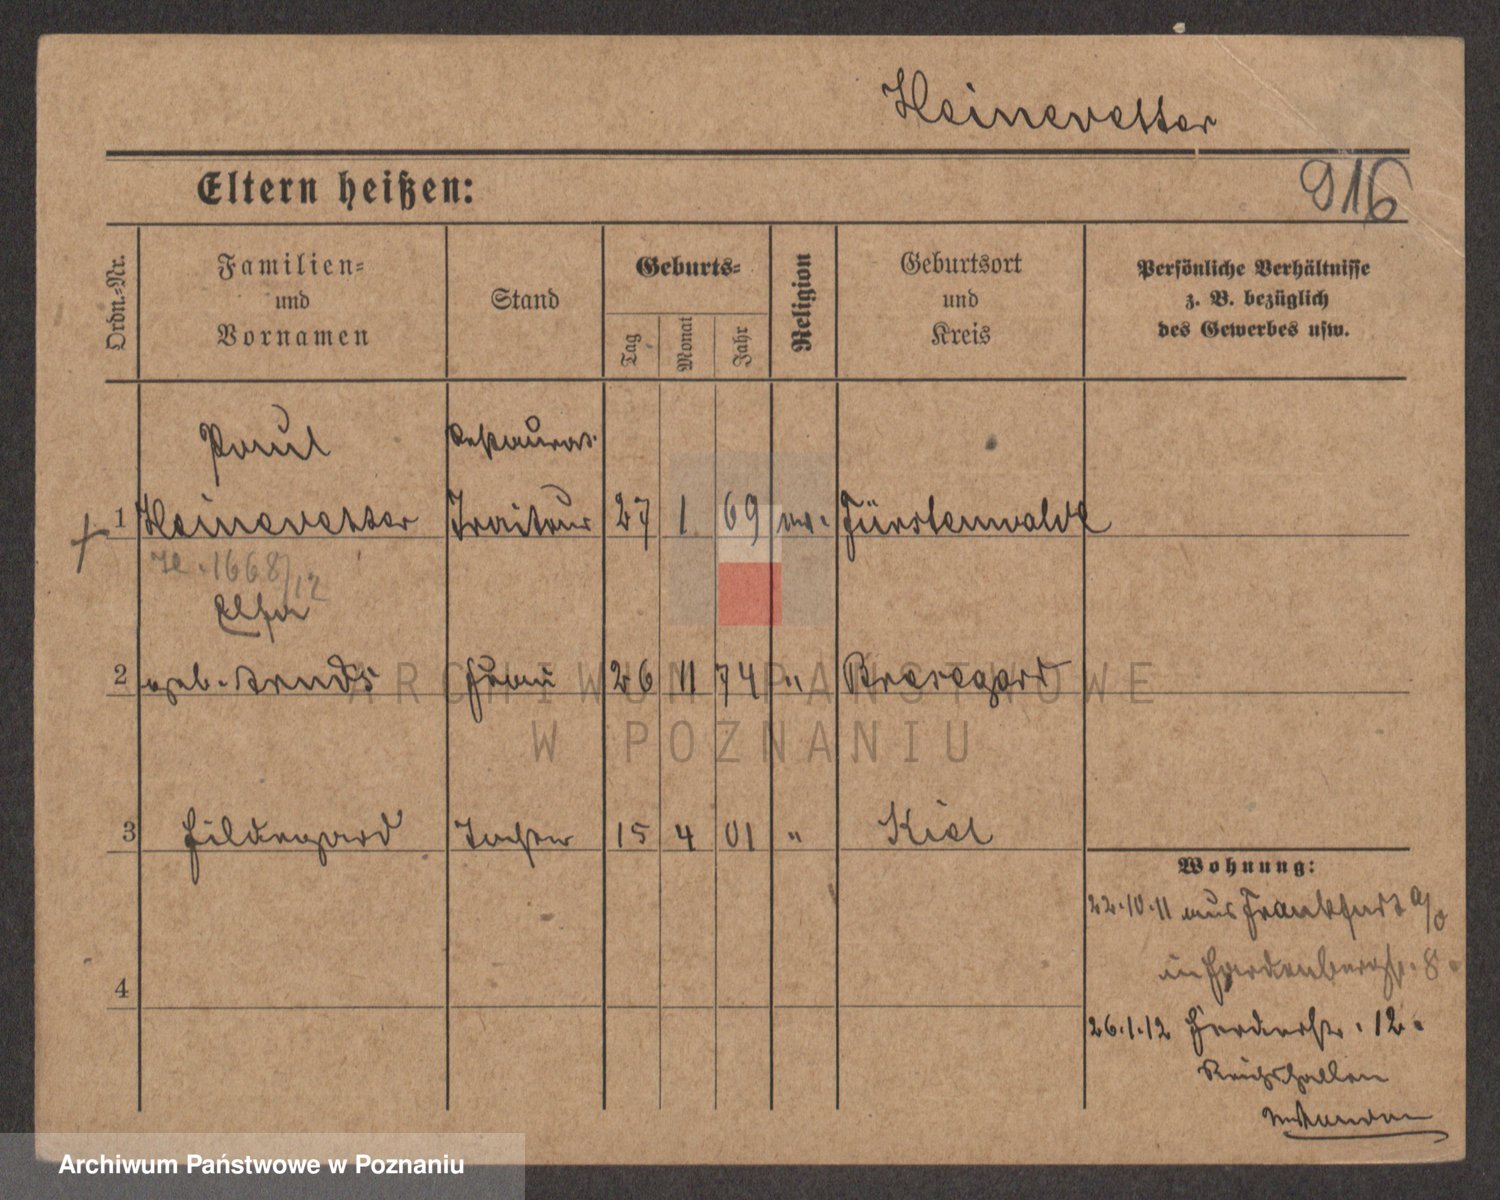 Heinevetter
916
Eltern heißen:
Ordn.-Nr.
Familien-
und
Vornamen
Stand
Geburts-
Tag
Monat
Jahr
Religion
Geburtsort
und
Kreis
Persönliche Verhältnisse
z. B. bezüglich
des Gewerbes usw.
Paul Restaurat.
1 Heinevetter Traiteur 27 1 69 ev. Fürstenwalde
1668/12
Elsa
2 geb. Arnds Frau 26 11 74 "
3 Hildegard Tochter 15 4 01 " Kiel
Wohnung:
22.10.11 aus Frankfurt a/O
in 8.
4
26.1.12 12.
Reichshallen
ARCHIWUM PAŃSTWOWE
W POZNANIU
Archiwum Państwowe w Poznaniu